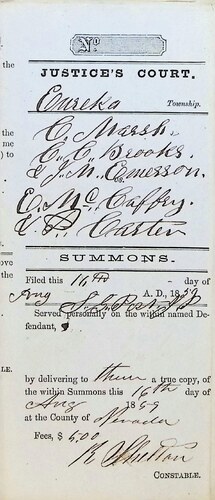 No
the
JUSTICE'S COURT.
Eureka Township.
the
me
) to
C. Marsh.
C. C. Brooks.
& J. M. Emerson.
E. Mc Caffry.
L. P. Carter
SUMMONS.
ove
the
Filed this 16th day of
Aug A. D., 1859
Served personally on the within named De-
fendant,
LE.
by delivering to them a true copy, of
the within Summons this 16th day of
Aug 1859
at the County of Nevada
Fees, $ 5.00
CONSTABLE.